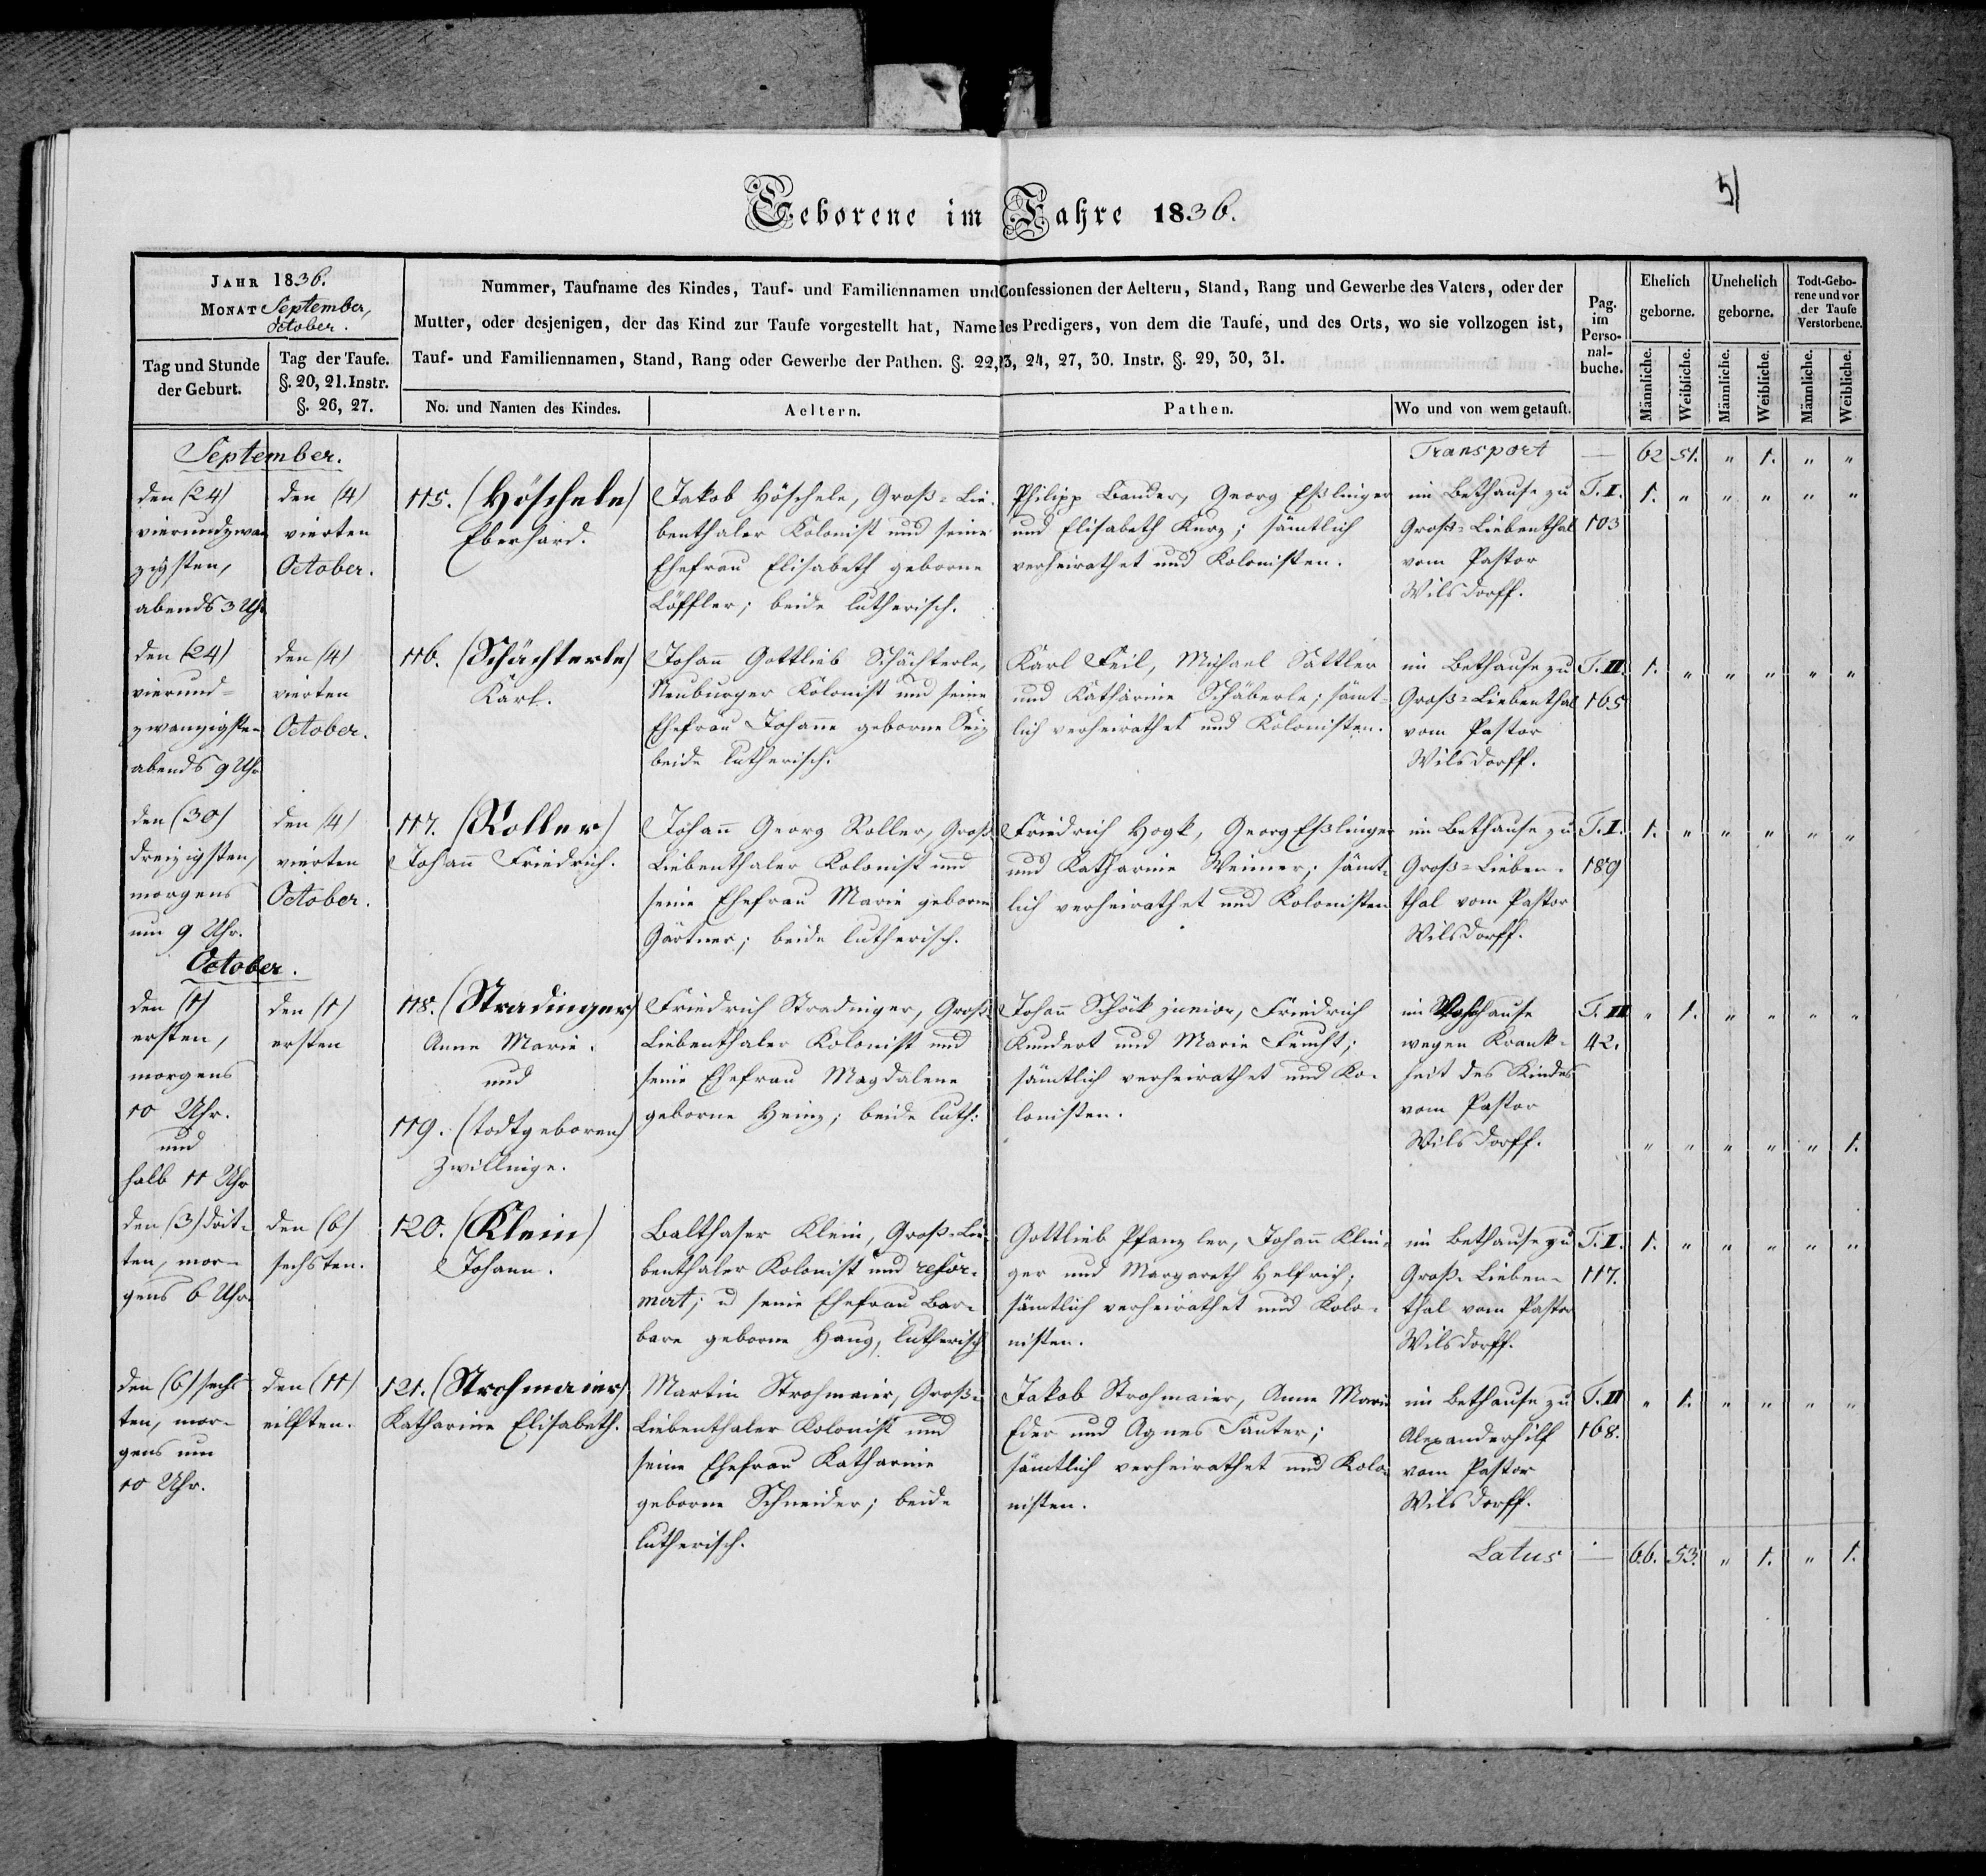 5
Geborene im Jahre 1836.
JAHR 1836.
MONAT September,
October.
Tag und Stunde
der Geburt.
Tag der Taufe.
§. 20, 21. Instr.
§. 26, 27.
Nummer, Taufname des Kindes, Tauf- und Familiennamen und Confessionen der Aeltern, Stand, Rang und Gewerbe des Vaters, oder der
Mutter, oder desjenigen, der das Kind zur Taufe vorgestellt hat, Name des Predigers, von dem die Taufe, und des Orts, wo sie vollzogen ist,
Tauf- und Familiennamen, Stand, Rang oder Gewerbe der Pathen. §. 22, 23, 24, 27, 30. Instr. §. 29, 30, 31.
No. und Namen des Kindes.
Aeltern.
Pathen.
Wo und von wem getauft.
Pag.
im
Perso-
nal-
buche.
Ehelich
geborne.
Unehelich
geborne.
Todt-Gebo-
rene und vor
der Taufe
Verstorbene.
Männliche.
Weibliche.
Männliche.
Weibliche.
Männliche.
Weibliche.
September.
Transport — 62 51. " 1. " "
den (24)
vierundzwan
zigsten,
abends 3 Uhr
den (4)
vierten
October.
115. (Höschele)
Eberhard.
Jakob Höschele, Groß=Lie-
benthaler Kolonist und seine
Ehefrau Elisabeth geborne
Löffler; beide lutherisch.
Philipp Bander, Georg Eßlinger
und Elisabeth Kurz; sämtlich
verheirathet und Kolonisten.
im Bethause zu
Groß=Liebenthal
vom Pastor
Wilsdorff.
T. I.
103
1. " " " " "
den (24)
vierund=
zwanzigsten
abends 9 Uhr
den (4)
vierten
October.
116. (Schächterle)
Karl.
Johann Gottlieb Schächterle,
Neuburger Kolonist und seine
Ehefrau Johanne geborne Seiz
beide lutherisch.
Karl Feil, Michael Sattler
und Katharine Schäberle; sämt-
lich verheirathet und Kolonisten.
im Bethause zu
Groß=Liebenthal
vom Pastor
Wilsdorff.
T. II.
165
1. " " " " "
den (30)
dreizigsten,
morgens
um 9 Uhr.
den (4)
vierten
October.
117. (Roller)
Johann Friedrich.
Johann Georg Roller, Groß=
Liebenthaler Kolonist und
seine Ehefrau Marie geborne
Gärtner; beide lutherisch.
Friedrich Hogk, Georg Eßlinger
und Katharine Weimer; sämt-
lich verheirathet und Kolonisten
im Bethause zu
Groß=Lieben-
thal vom Pastor
Wilsdorff.
T. I.
189
1. " " " " "
October.
den (1)
ersten,
morgens
10 Uhr.
und
halb 11 Uhr
den (1)
ersten
118. (Stradinger)
Anne Marie.
und
119. (todtgeboren)
Zwillinge.
Friedrich Stradinger, Groß=
Liebenthaler Kolonist und
seine Ehefrau Magdalene
geborne Heinz; beide luth:
Johann Schöck junior, Friedrich
Kundert und Marie Feucht;
sämtlich verheirathet und Ko-
lonisten.
im Wohnhause
wegen Krank-
heit des Kindes
vom Pastor
Wilsdorff.
T. II
42.
" 1. " " " "
" " " " " 1.
den (3) drit-
ten, mor-
gens 6 Uhr.
den (6)
sechsten.
120. (Klein)
Johann.
Balthaser Klein, Groß=Lie-
benthaler Kolonist und refor-
mirt; u seine Ehefrau Bar-
bare geborne Haug, lutherisch
Gottlieb Pfanzler, Johann Klin-
ger und Margareth Helfrich;
sämtlich verheirathet und Kolo-
nisten.
im Bethause zu
Groß=Lieben-
thal vom Pastor
Wilsdorff.
T. I.
117.
1. " " " " "
den (6) sechs
ten, mor-
gens um
10 Uhr.
den (11)
eilften.
121. (Strohmaier)
Katharine Elisabeth.
Martin Strohmaier, Groß=
Liebenthaler Kolonist und
seine Ehefrau Katharine
geborne Schneider; beide
lutherisch.
Jakob Strohmaier, Anne Marie
Eder und Agnes Sauter;
sämtlich verheirathet und Kolo-
nisten.
im Bethause zu
Alexanderhilf
vom Pastor
Wilsdorff.
T. II
168.
" 1. " " " "
Latus — 66. 53. " 1. " 1.